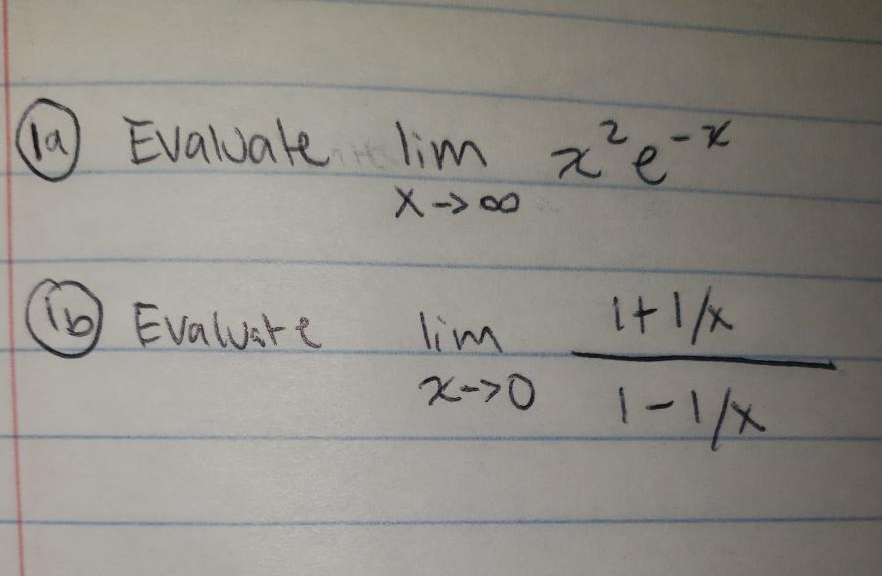 1a Evaluate lim x²e⁻ˣ
x->∞
1b Evaluate lim 1+1/x
x->0 1-1/x